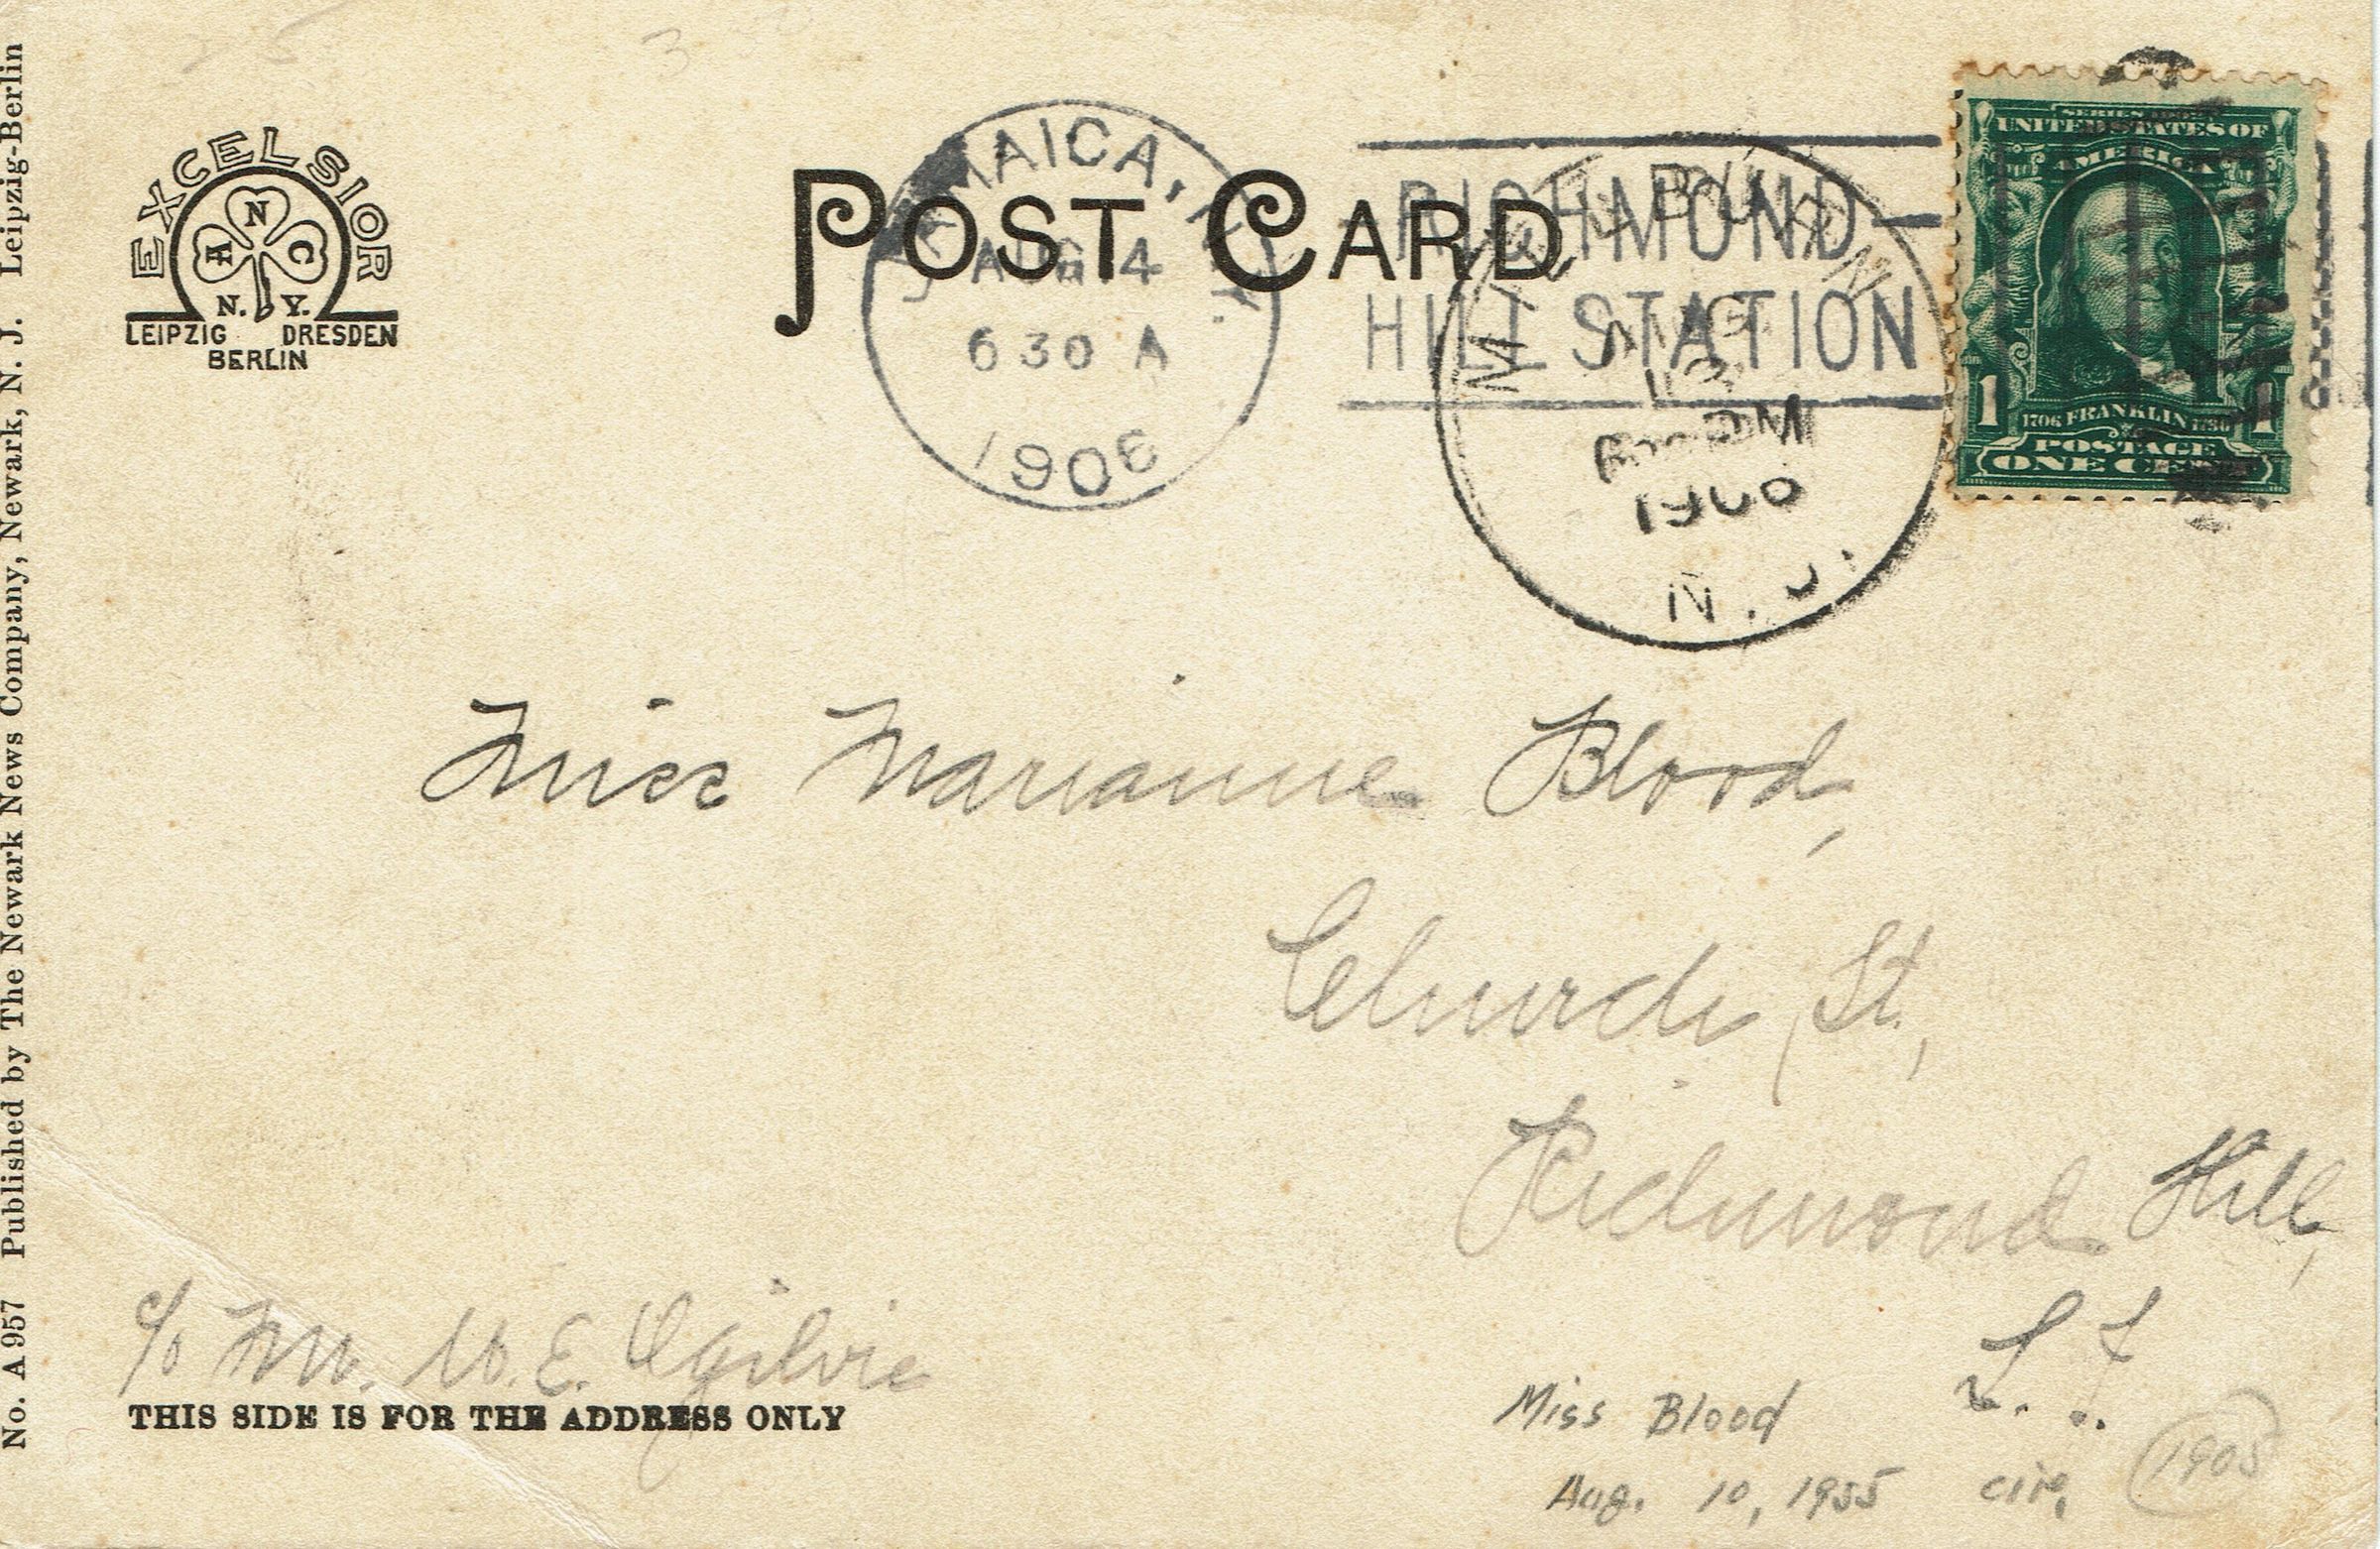 No. A 957 Published by The Newark News Company, Newark, N. J. Leipzig-Berlin
EXCELSIOR
A N C
N. Y.
LEIPZIG DRESDEN
BERLIN
POST CARD
JAMAICA, N.Y.
AUG 4
6 30 A
1906
RICHMOND
HILL STATION
MILLBURN
AUG
3
PM
1906
N. J.
SERIES 1902
UNITED STATES OF
AMERICA
1 1
1706 FRANKLIN 1790
POSTAGE
ONE CENT
Miss Marianne Blood,
Church St.,
Richmond Hill,
L. I.
c/o Mr. W. E. Ogilvie
THIS SIDE IS FOR THE ADDRESS ONLY
Miss Blood
Aug. 10, 1955 cir. 1905